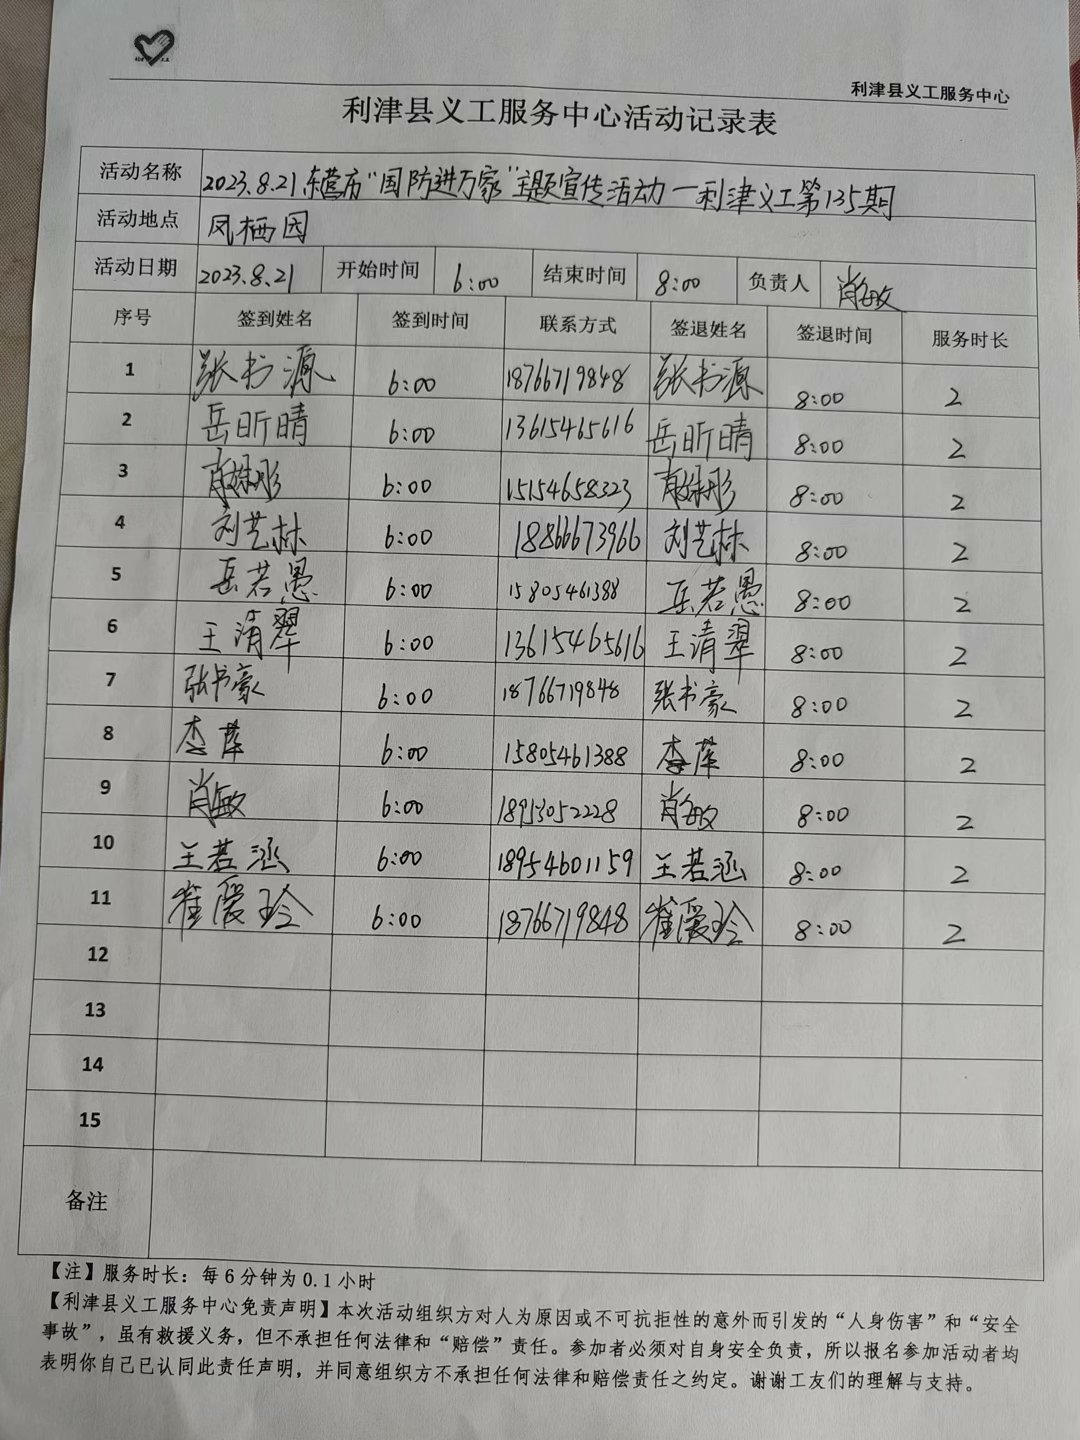 利津县义工服务中心
利津县义工服务中心活动记录表
活动名称 2023.8.21东营市“国防进万家”主题宣传活动—利津义工第135期
活动地点 凤栖园
活动日期 2023.8.21 开始时间 6:00 结束时间 8:00 负责人 肖敏
序号 签到姓名 签到时间 联系方式 签退姓名 签退时间 服务时长
1 张书源 6:00 18766719848 张书源 8:00 2
2 岳昕晴 6:00 13615465616 岳昕晴 8:00 2
3 6:00 15154658323 8:00 2
4 刘艺林 6:00 18866673966 刘艺林 8:00 2
5 岳若愚 6:00 15805461388 岳若愚 8:00 2
6 王清翠 6:00 13615465616 王清翠 8:00 2
7 张书豪 6:00 18766719848 张书豪 8:00 2
8 李萍 6:00 15805461388 李萍 8:00 2
9 肖敏 6:00 18953052228 肖敏 8:00 2
10 王若涵 6:00 18954601159 王若涵 8:00 2
11 崔爱玲 6:00 18766719848 崔爱玲 8:00 2
12
13
14
15
备注
【注】服务时长：每6分钟为0.1小时
【利津县义工服务中心免责声明】本次活动组织方对人为原因或不可抗拒性的意外而引发的“人身伤害”和“安全
事故”，虽有救援义务，但不承担任何法律和“赔偿”责任。参加者必须对自身安全负责，所以报名参加活动者均
表明你自己已认同此责任声明，并同意组织方不承担任何法律和赔偿责任之约定。谢谢工友们的理解与支持。